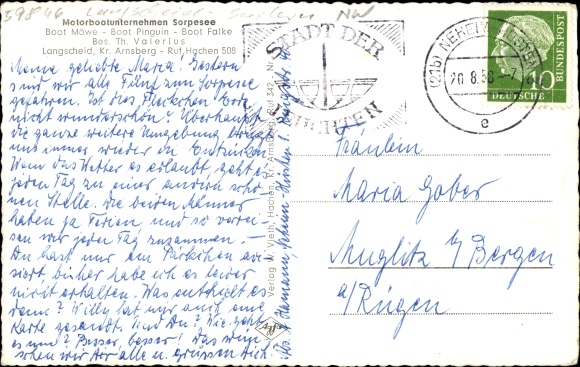 39846
Langscheid Sorpesee NW
Motorbootunternehmen Sorpesee
Boot Möwe - Boot Pinguin - Boot Falke
Bes. Th. Valerius
Langscheid, Kr. Arnsberg - Ruf Hachen 508
Meine geliebte Maria! Gestern
sind wir alle Fünf zum Sorpesee
gefahren. Ist das Fleckchen Erde
nicht wunderschön? Überhaupt
die ganze weitere Umgebung bringt
uns immer wieder in Entzücken.
Wenn das Wetter es erlaubt, geht es
jeden Tag zu einer andern schö-
nen Stelle. Die beiden Männer
haben ja Ferien und so verrei-
sen wir jeden Tag zusammen. -
Du hast mir ein Päckchen avi-
siert bisher habe ich es leider
nicht erhalten. Was enthielt es
denn? Willy hat mir auch eine
Karte gesandt. Und Du? Wie geht
es nun? Besser, besser! Das wün-
schen wir Dir alle u. grüssen Dich
Verlag W. Vieth, Hachen, Kr. Arnsberg, Ruf 342 Nr.
Agfa
STADT DER
LEUCHTEN
(21b) NEHEIM-HÜSTEN
20.8.58-7
e
DEUTSCHE
BUNDESPOST
10
Fräulein
Maria Gober
Muglitz b/Bergen
a/Rügen